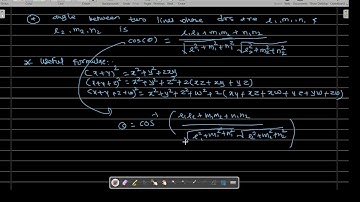 (*) angle between two lines where drs are l₁, m₁, n₁ &
l₂, m₂, n₂ is
cos(θ) = l₁l₂ + m₁m₂ + n₁n₂ / √l₁² + m₁² + n₁² √l₂² + m₂² + n₂²
* Useful Formulae:-
(x+y)² = x² + y² + 2xy
(x+y+z)² = x² + y² + z² + 2(xz + xy + yz)
(x+y+z+w)² = x² + y² + z² + w² + 2(xy + xz + xw + yz + yw + zw)
θ = cos⁻¹ ( l₁l₂ + m₁m₂ + n₁n₂ / √l₁² + m₁² + n₁² √l₂² + m₂² + n₂² )